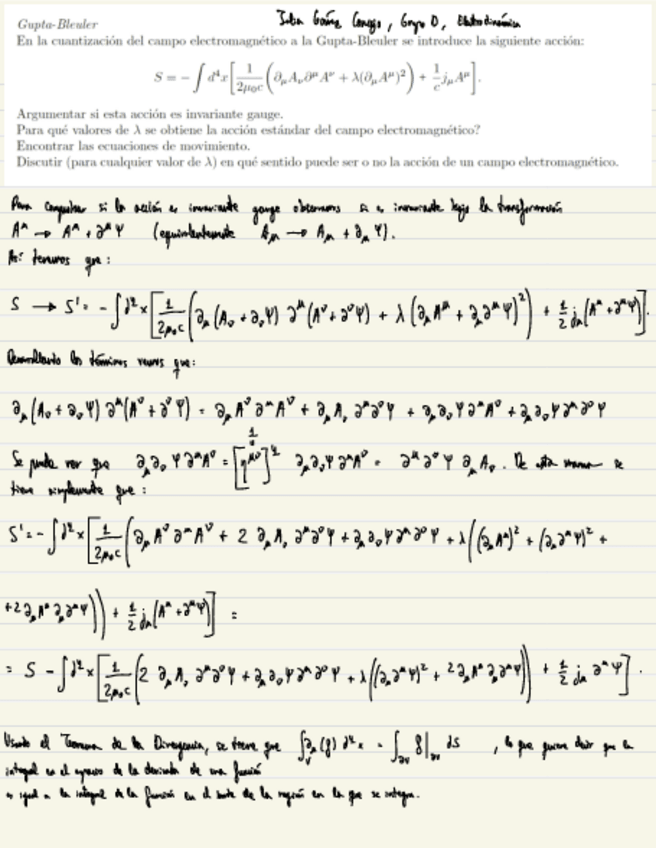 Gupta-Bleuler
Grupo D, Electrodinámica
En la cuantización del campo electromagnético a la Gupta-Bleuler se introduce la siguiente acción:
S = − ∫ d⁴x [ 1/(2μ₀c) ( ∂_μ A_ν ∂^μ A^ν + λ(∂_μ A^μ)² ) + 1/c j_μ A^μ ].
Argumentar si esta acción es invariante gauge.
Para qué valores de λ se obtiene la acción estándar del campo electromagnético?
Encontrar las ecuaciones de movimiento.
Discutir (para cualquier valor de λ) en qué sentido puede ser o no la acción de un campo electromagnético.
Para comprobar si la acción es invariante gauge observamos si es invariante bajo la transformación
A^μ → A^μ + ∂^μ Ψ (equivalentemente A_μ → A_μ + ∂_μ Ψ).
Así tenemos que:
S → S' = − ∫ d⁴x [ 1/(2μ₀c) ( ∂_μ (A_ν + ∂_ν Ψ) ∂^μ (A^ν + ∂^ν Ψ) + λ (∂_μ A^μ + ∂_μ ∂^μ Ψ)² ) + 1/2 j_μ (A^μ + ∂^μ Ψ) ].
Desarrollando los términos vemos que:
∂_μ (A_ν + ∂_ν Ψ) ∂^μ (A^ν + ∂^ν Ψ) = ∂_μ A^ν ∂^μ A^ν + ∂_μ A_ν ∂^μ ∂^ν Ψ + ∂_μ ∂_ν Ψ ∂^μ A^ν + ∂_μ ∂_ν Ψ ∂^μ ∂^ν Ψ
Se puede ver que ∂_μ ∂_ν Ψ ∂^μ A^ν = [η^μν]² ∂_μ ∂_ν Ψ ∂^μ A^ν = ∂^μ ∂^ν Ψ ∂_μ A_ν. De esta manera se
tiene simplemente que:
S' = − ∫ d⁴x [ 1/(2μ₀c) ( ∂_μ A^ν ∂^μ A^ν + 2 ∂_μ A_ν ∂^μ ∂^ν Ψ + ∂_μ ∂_ν Ψ ∂^μ ∂^ν Ψ + λ ( (∂_μ A^μ)² + (∂_μ ∂^μ Ψ)² +
+ 2 ∂_μ A^μ ∂_μ ∂^μ Ψ ) ) + 1/2 j_μ (A^μ + ∂^μ Ψ) ] =
= S − ∫ d⁴x [ 1/(2μ₀c) ( 2 ∂_μ A_ν ∂^μ ∂^ν Ψ + ∂_μ ∂_ν Ψ ∂^μ ∂^ν Ψ + λ ( (∂_μ ∂^μ Ψ)² + 2 ∂_μ A^μ ∂_μ ∂^μ Ψ ) ) + 1/2 j_μ ∂^μ Ψ ].
Usando el Teorema de la Divergencia, se tiene que ∫_V ∂_μ (g) d⁴x = ∫_∂V g|_∂V ds , lo que quiere decir que la
integral en el espacio de la derivada de una función
es igual a la integral de la función en el borde de la región en la que se integra.